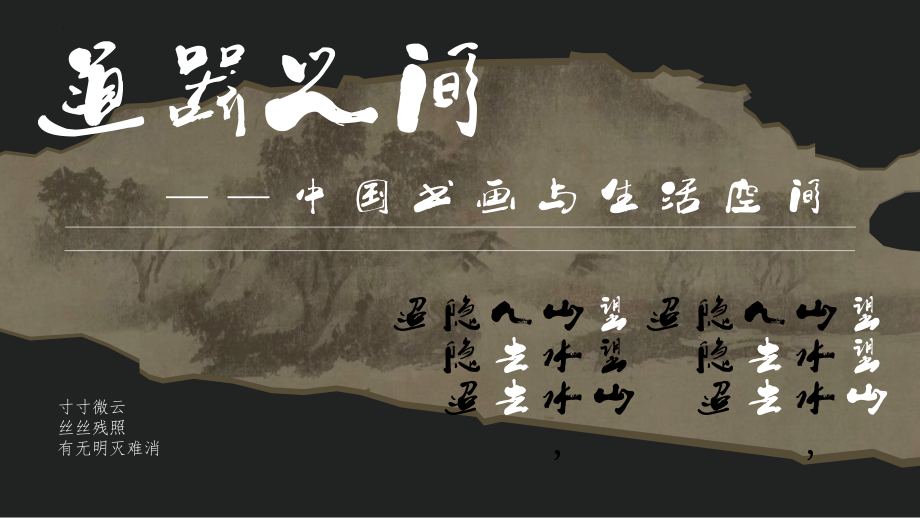 道器之间
——中国书画与生活空间
望望山
山水水，
人去去
隐隐迢
迢
望望山
山水水，
人去去
隐隐迢
迢
寸寸微云
丝丝残照
有无明灭难消